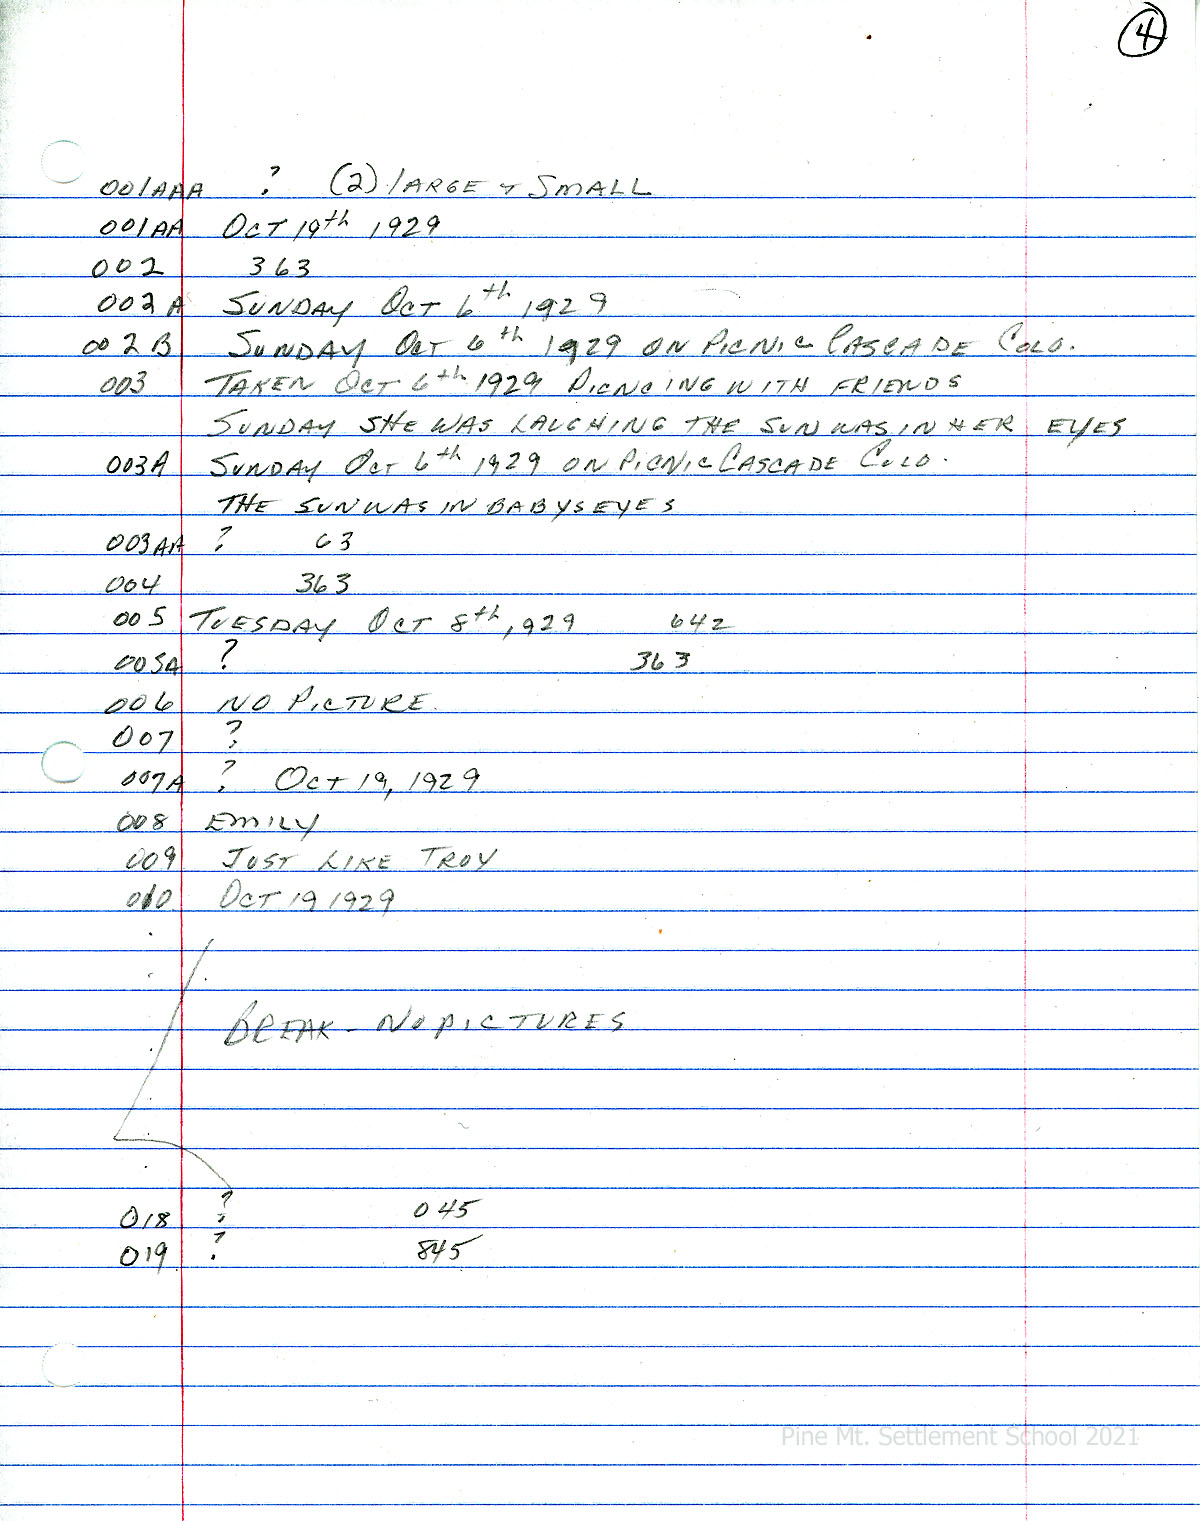 4
001AAA ? (2) LARGE + SMALL
001AA OCT 19th 1929
002 363
002A SUNDAY OCT 6th 1929
002B SUNDAY OCT 6th 1929 ON PICNIC CASCADE COLO.
003 TAKEN OCT 6th 1929 PICNCING WITH FRIENDS
SUNDAY SHE WAS LAUGHING THE SUN WAS IN HER EYES
003A SUNDAY OCT 6th 1929 ON PICNIC CASCADE COLO.
THE SUN WAS IN BABYS EYES
003AA ? 63
004 363
005 TUESDAY OCT 8th, 929 642
005A ? 363
006 NO PICTURE.
007 ?
007A ? OCT 19, 1929
008 EMILY
009 JUST LIKE TROY
010 OCT 19 1929
BREAK - NO PICTURES
018 ? 045
019 ? 845
Pine Mt. Settlement School 2021